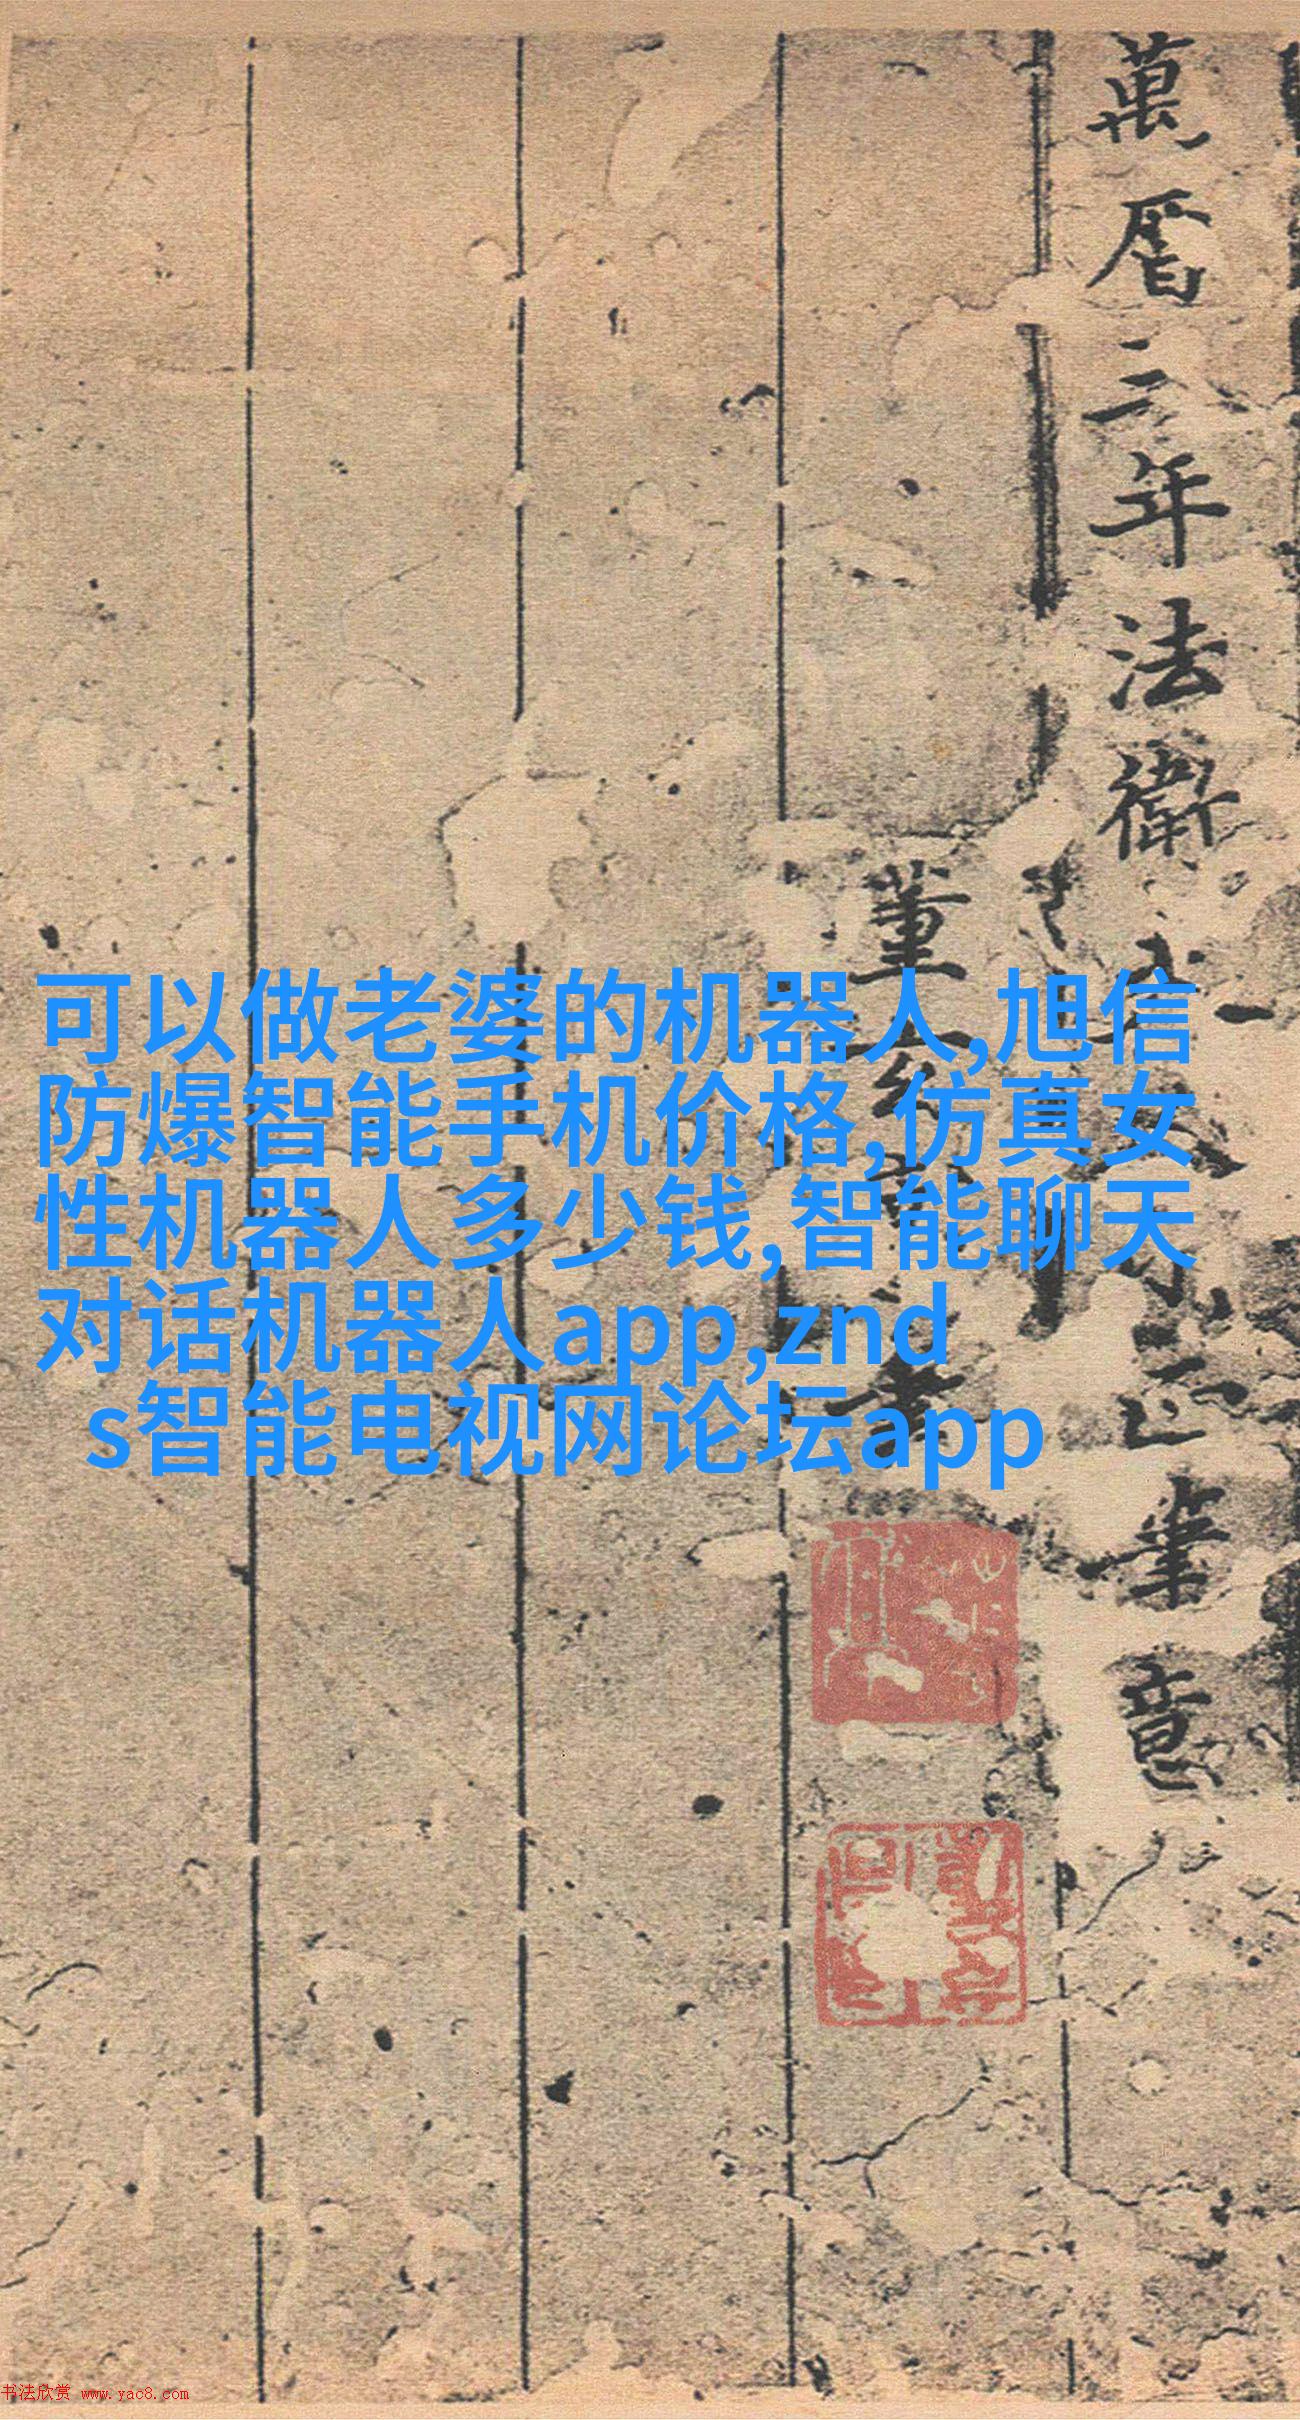 萬曆三年法衛
正筆意
董玄宰
可以做老婆的机器人,旭信
防爆智能手机价格,仿真女
性机器人多少钱,智能聊天
对话机器人app,znd
s智能电视网论坛app
书法欣赏 www.yac8.com